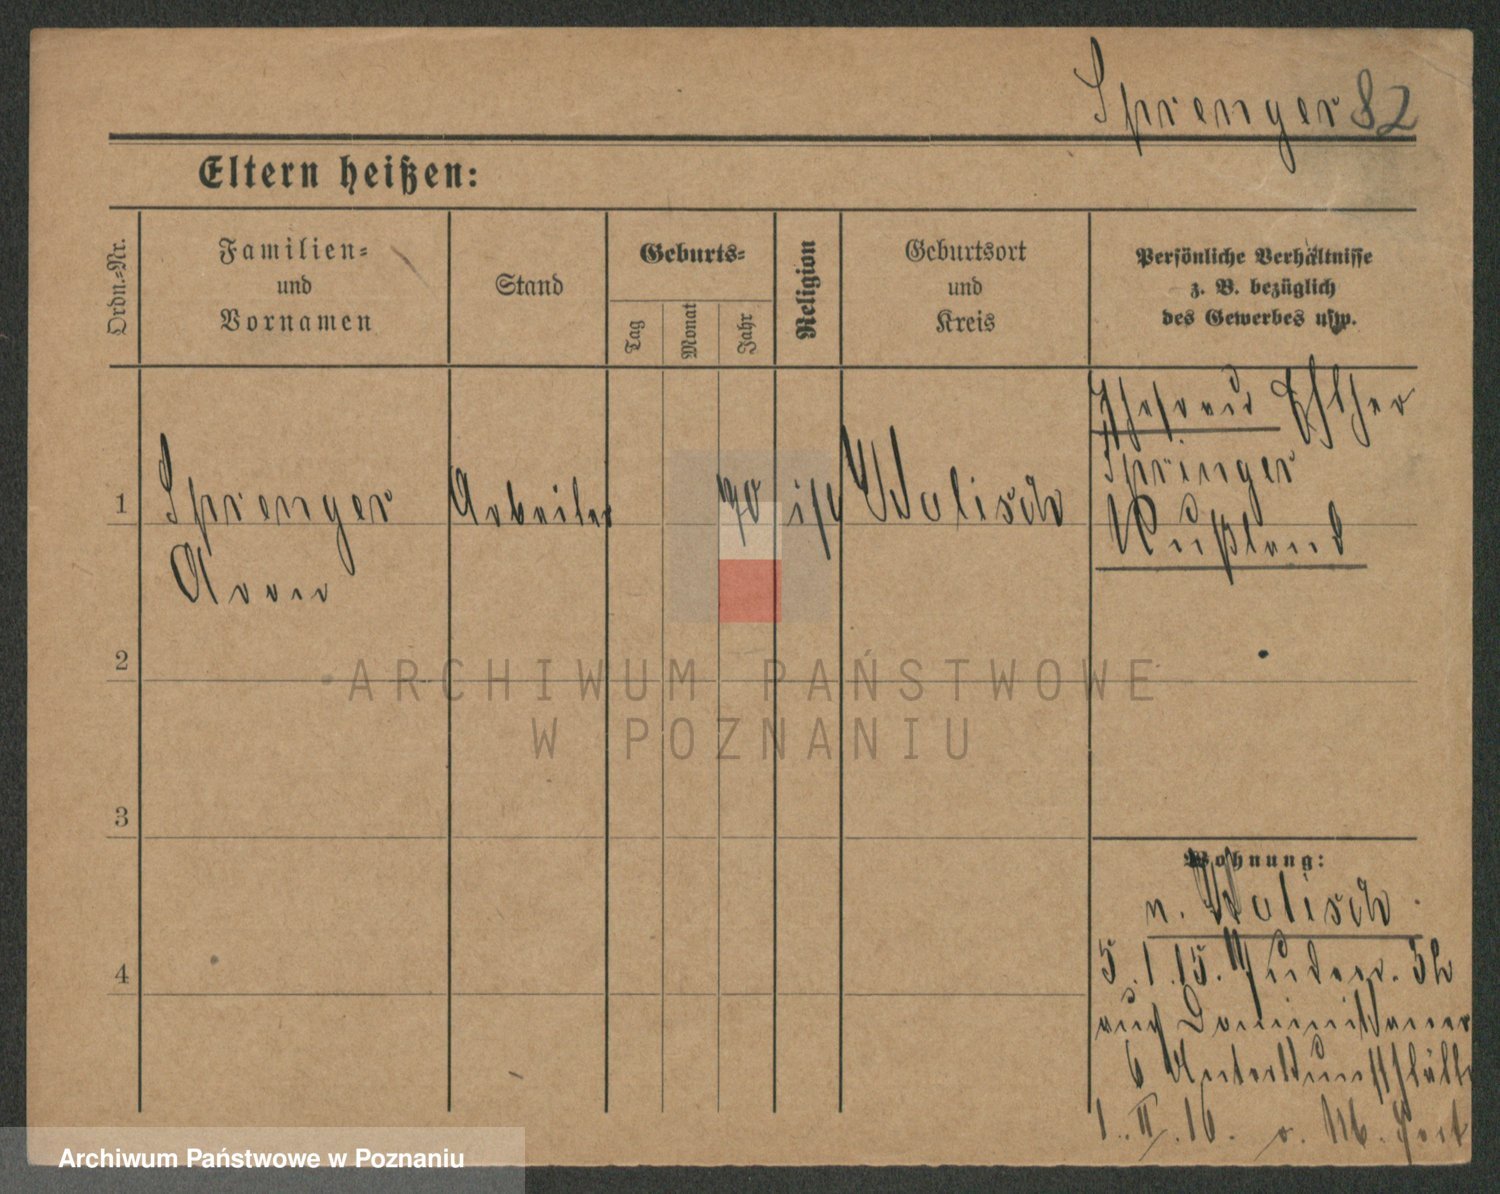 Sprenger 82
Eltern heißen:
Ordn.=Nr.
Familien=
und
Vornamen
Stand
Geburts=
Tag
Monat
Jahr
Religion
Geburtsort
und
Kreis
Persönliche Verhältnisse
z. B. bezüglich
des Gewerbes usw.
Ehefrau Esther
Springer
Rußland
1 Sprenger Arbeiter 70 isr Wolisch
Aron
2
3
4
Wohnung:
n. Wolisch
5.1.15.
auf Dominikaner
6 Unterkunfts
1. II. 16. o. M. fort
ARCHIWUM PAŃSTWOWE
W POZNANIU
Archiwum Państwowe w Poznaniu